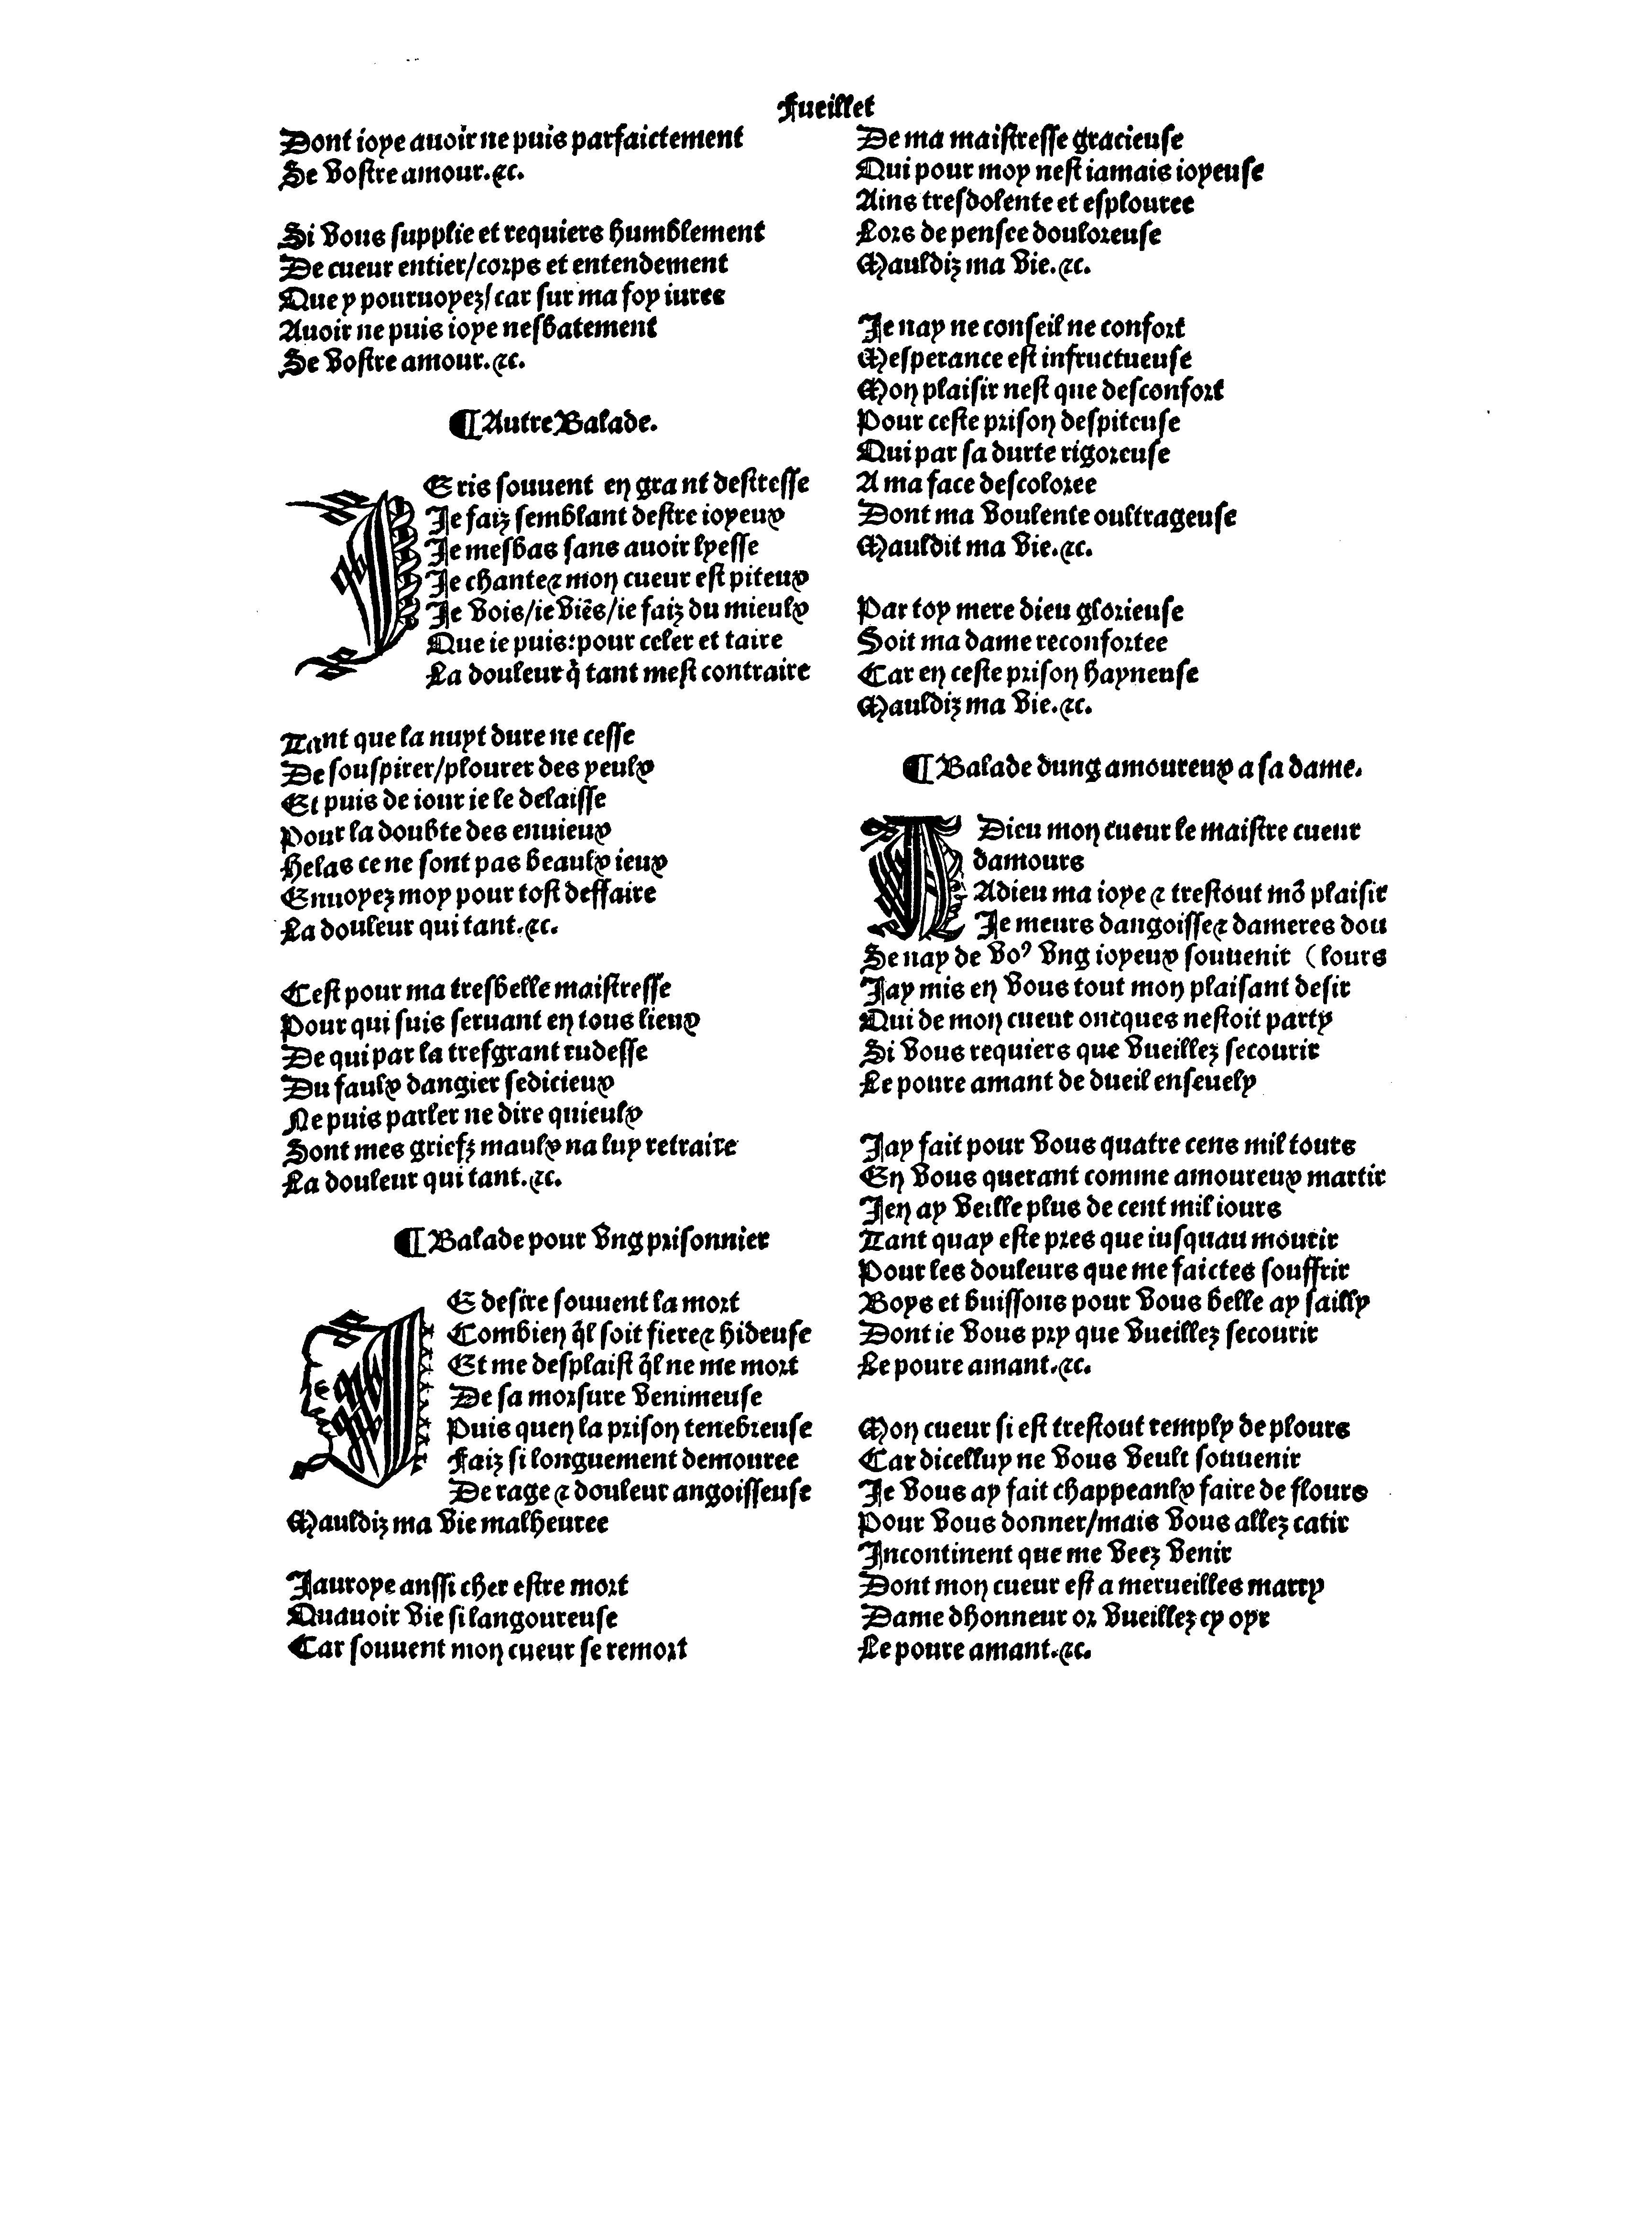 Fueillet
Dont ioye auoir ne puis parfaictement
Se vostre amour.⁊c.
Si vous supplie et requiers humblement
De cueur entier/corps et entendement
Que y pouruoyez/car sur ma foy iuree
Auoir ne puis ioye nesbatement
Se vostre amour.⁊c.
¶Autre Balade.
IE ris souuent en grant destresse
Je faiz semblant destre ioyeux
Je mesbas sans auoir lyesse
Je chante⁊ mon cueur est piteux
Je vois/ie viẽs/ie faiz du mieulx
Que ie puis:pour celer et taire
La douleur q̃ tant mest contraire
Tant que la nuyt dure ne cesse
De souspirer/plourer des yeulx
Et puis de iour ie le delaisse
Pour la doubte des enuieux
Helas ce ne sont pas beaulx ieux
Enuoyez moy pour tost deffaire
La douleur qui tant.⁊c.
Cest pour ma tresbelle maistresse
Pour qui suis seruant en tous lieux
De qui par la tresgrant rudesse
Du faulx dangier sedicieux
Ne puis parler ne dire quieulx
Sont mes griefz maulx na luy retraire
La douleur qui tant.⁊c.
¶Balade pour vng prisonnier
IE desire souuent la mort
Combien q̃l soit fiere⁊ hideuse
Et me desplaist q̃l ne me mort
De sa morsure venimeuse
Puis quen la prison tenebreuse
Faiz si longuement demouree
De rage ⁊ douleur angoisseuse
Mauldiz ma vie malheuree
Jauroye anssi cher estre mort
Quauoir vie si langoureuse
Car souuent mon cueur se remort
De ma maistresse gracieuse
Qui pour moy nest iamais ioyeuse
Ains tresdolente et esplouree
Lors de pensee douloreuse
Mauldiz ma vie.⁊c.
Je nay ne conseil ne confort
Mesperance est infructueuse
Mon plaisir nest que desconfort
Pour ceste prison despiteuse
Qui par sa durte rigoreuse
A ma face descoloree
Dont ma voulente oultrageuse
Mauldit ma vie.⁊c.
Par toy mere dieu glorieuse
Soit ma dame reconfortee
Car en ceste prison hayneuse
Mauldiz ma vie.⁊c.
¶Balade dung amoureux a sa dame.
ADieu mon cueur le maistre cueur
damours
Adieu ma ioye ⁊ trestout mõ plaisir
Je meurs dangoisse⁊ dameres dou
Se nay de voꝰ vng ioyeux souuenir (lours
Jay mis en vous tout mon plaisant desir
Qui de mon cueur oncques nestoit party
Si vous requiers que vueillez secourir
Le poure amant de dueil enseuely
Jay fait pour vous quatre cens mil tours
En vous querant comme amoureux martir
Jen ay veille plus de cent mil iours
Tant quay este pres que iusquau mourir
Pour les douleurs que me faictes souffrir
Boys et buissons pour vous belle ay sailly
Dont ie vous pry que vueillez secourir
Le poure amant.⁊c.
Mon cueur si est trestout remply de plours
Car dicelluy ne vous veult souuenir
Je vous ay fait chappeanlx faire de flours
Pour vous donner/mais vous allez catir
Incontinent que me veez venir
Dont mon cueur est a merueilles marry
Dame dhonneur or vueillez cy oyr
Le poure amant.⁊c.